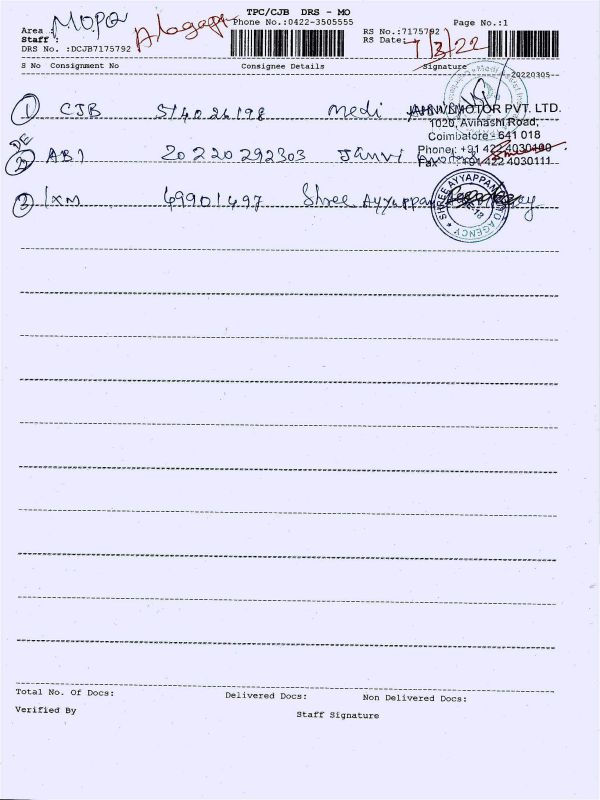 TPC/CJB DRS - MO
Area : MOPQ
Phone No.:0422-3505555
Page No.:1
Staff :
RS No.:7175792
DRS No. :DCJB7175792
RS Date: 7/3/22
S No Consignment No Consignee Details Signature
20220305
1 CJB 514026198 Medi
JAHNVI MOTOR PVT. LTD.
1020, Avinashi Road,
Coimbatore - 641 018
Phone: +91 422 4030100
Fax : +91 422 4030111
DE
2 AB1 20220292303 Janvi
3 IXM 49901497 Shree Ayyappan
SHREE AYYAPPAN AUTO AGENCY
Total No. Of Docs: Delivered Docs: Non Delivered Docs:
Verified By Staff Signature